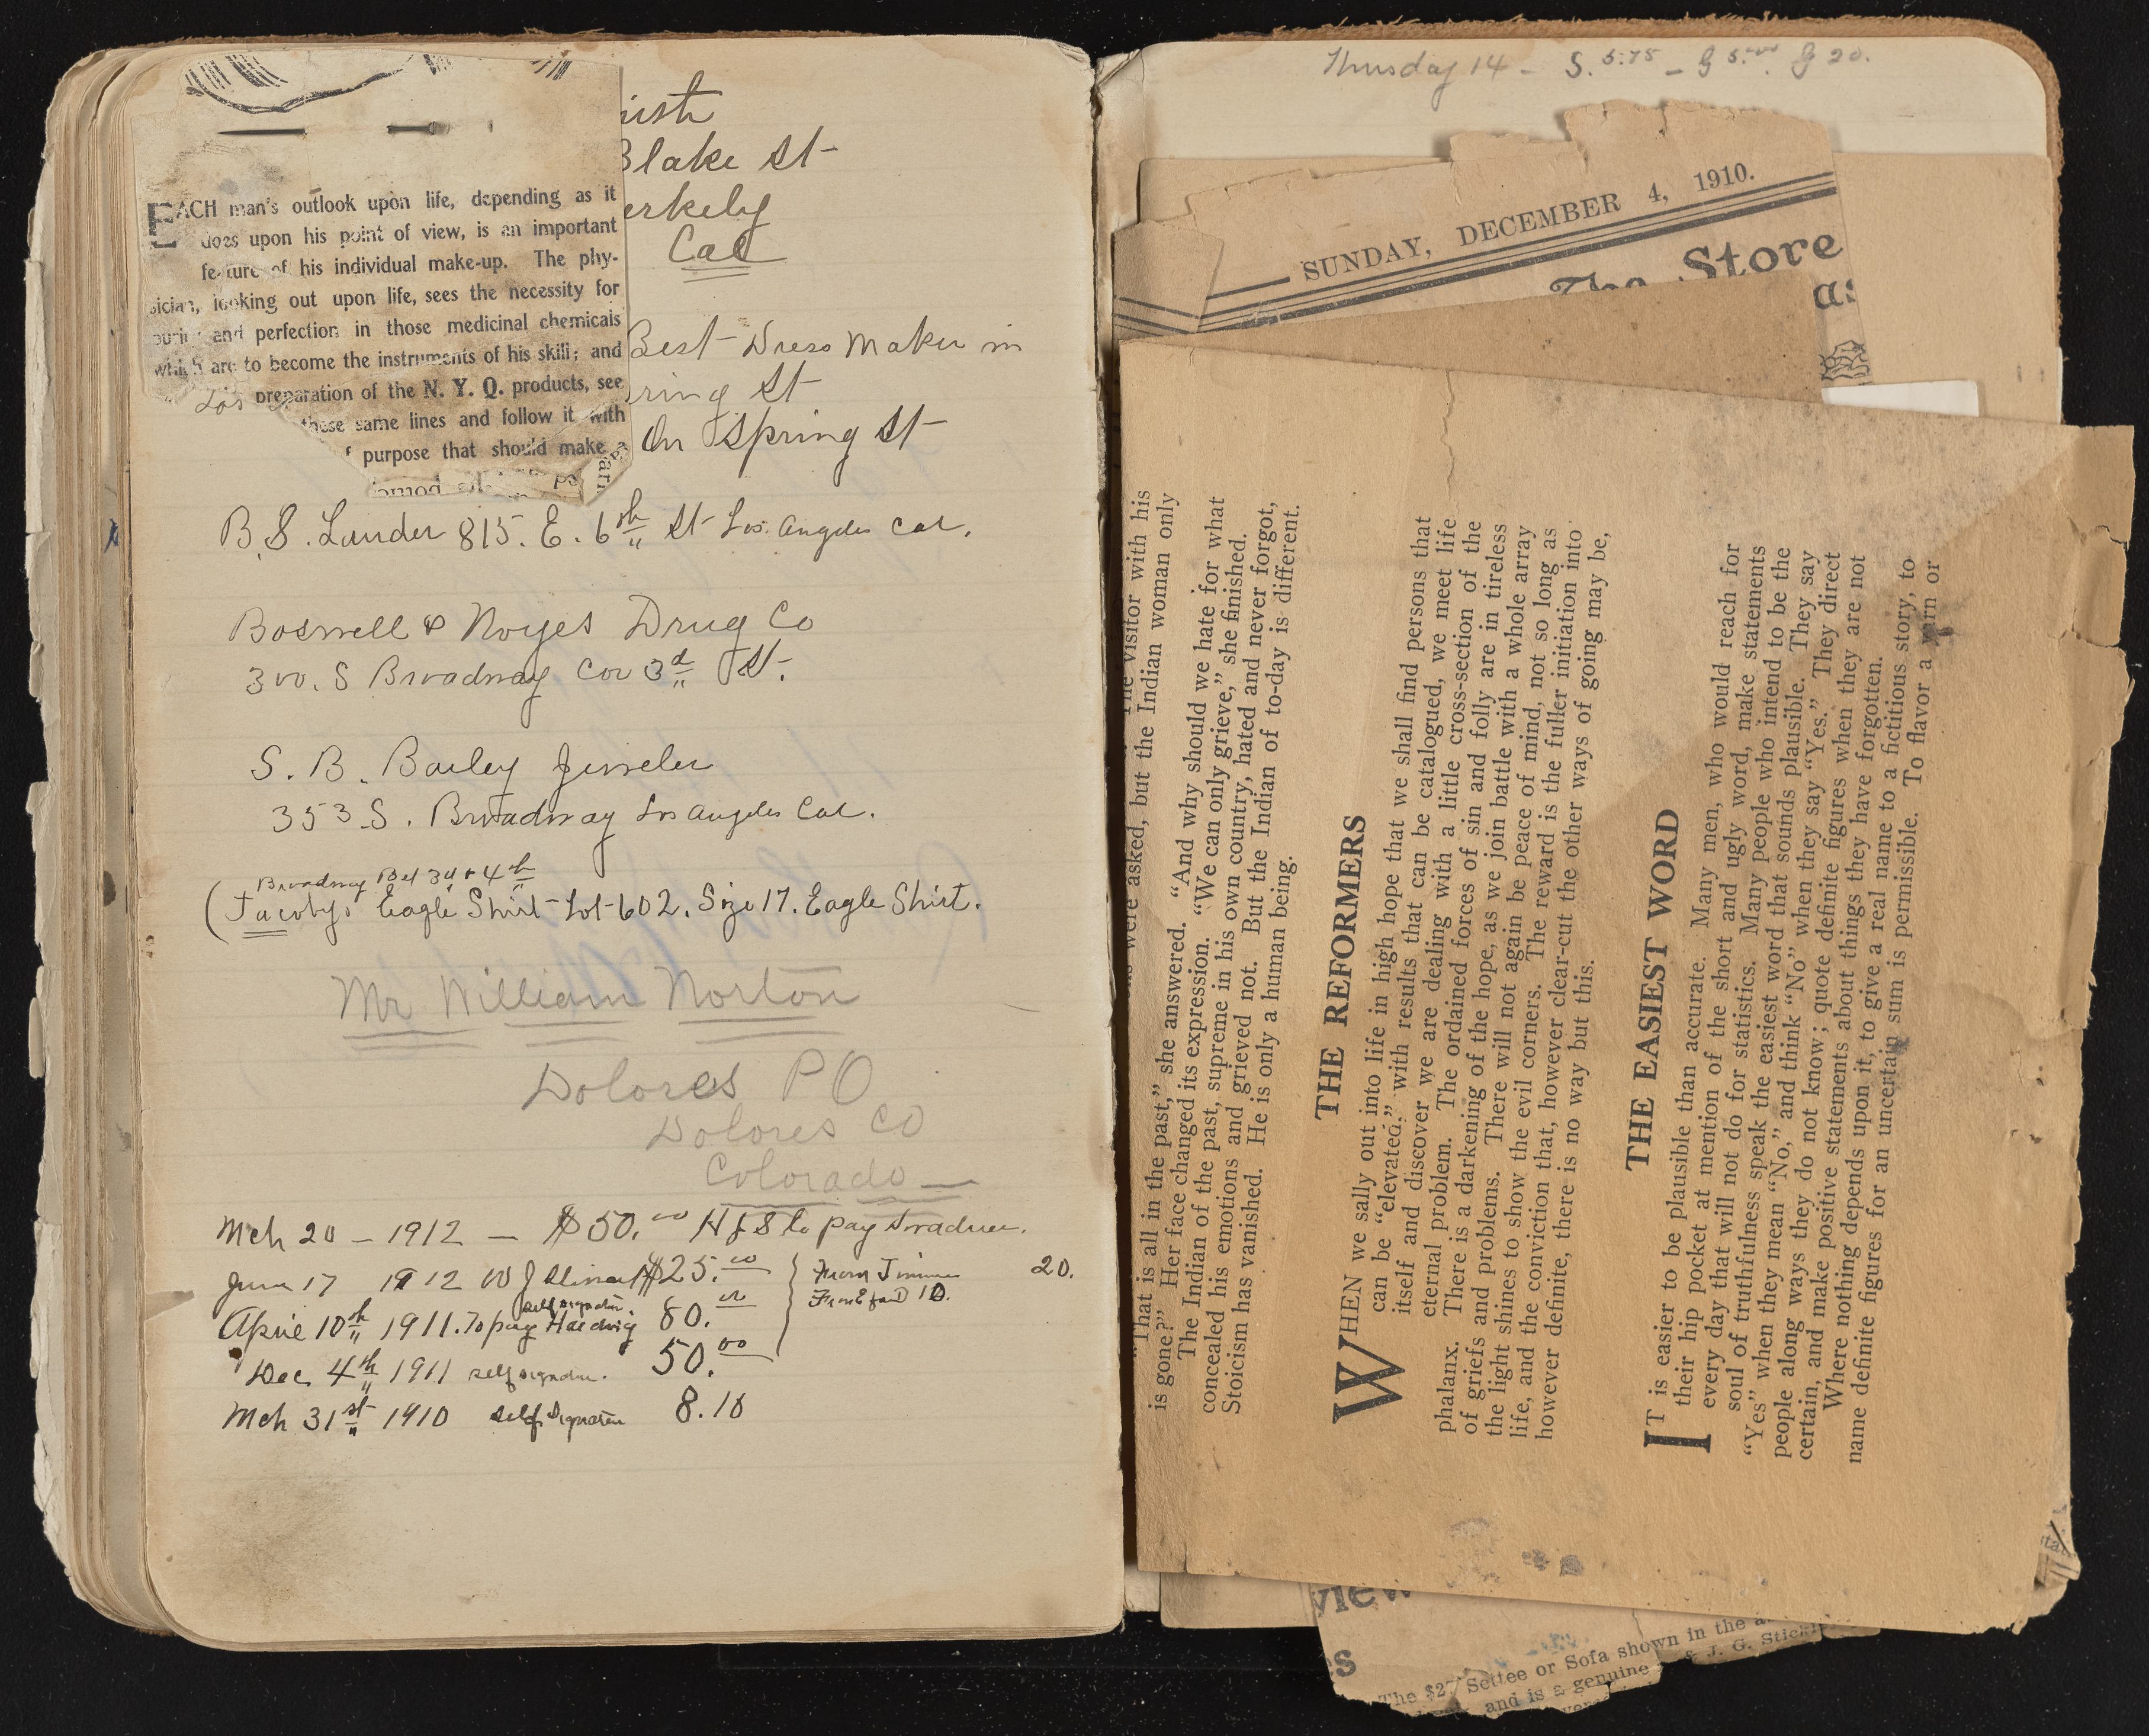 EACH man's outlook upon life, depending as it
does upon his point of view, is an important
feature of his individual make-up. The phy-
sician, looking out upon life, sees the necessity for
purity and perfection in those medicinal chemicals
which are to become the instruments of his skill; and
preparation of the N. Y. Q. products, see
these same lines and follow it with
f purpose that should make
Los
Blake St
erkely
Cal
Best Dress Maker in
ring St
On Spring St
B. S. Lauder 815. E. 6th St Los Angeles Cal.
Boswell & Noyes Drug Co
300. S Broadway Cor 3d St.
S. B. Bailey Jeweler
353 S. Broadway Los Angeles Cal.
Broadway Bet 3d & 4th
(Jacobys Eagle Shirt Lot 602. Size 17. Eagle Shirt.
Mr William Norton
Dolores PO
Dolores CO
Colorado
Mch 20 - 1912 - $50.00 H J S to pay
June 17 1912 $25.00 From Jimmie 20.
From E 10.
self signature.
April 10th 1911. To pay 80.00
Dec 4th 1911 self signature. 50.00
Mch 31st 1910 self signature 8.10
Thursday 14 - S. 5.75 - G 5.00 20.
SUNDAY, DECEMBER 4, 1910.
The Store
as
The visitor with his
were asked, but the Indian woman only
"That is all in the past," she answered. "And why should we hate for what
is gone?" Her face changed its expression. "We can only grieve," she finished.
The Indian of the past, supreme in his own country, hated and never forgot,
concealed his emotions and grieved not. But the Indian of to-day is different.
Stoicism has vanished. He is only a human being.
THE REFORMERS
WHEN we sally out into life in high hope that we shall find persons that
can be "elevated," with results that can be catalogued, we meet life
itself and discover we are dealing with a little cross-section of the
eternal problem. The ordained forces of sin and folly are in tireless
phalanx. There is a darkening of the hope, as we join battle with a whole array
of griefs and problems. There will not again be peace of mind, not so long as
the light shines to show the evil corners. The reward is the fuller initiation into
life, and the conviction that, however clear-cut the other ways of going may be,
however definite, there is no way but this.
THE EASIEST WORD
IT is easier to be plausible than accurate. Many men, who would reach for
their hip pocket at mention of the short and ugly word, make statements
every day that will not do for statistics. Many people who intend to be the
soul of truthfulness speak the easiest word that sounds plausible. They say
"Yes" when they mean "No," and think "No" when they say "Yes." They direct
people along ways they do not know; quote definite figures when they are not
certain, and make positive statements about things they have forgotten.
Where nothing depends upon it, to give a real name to a fictitious story, to
name definite figures for an uncertain sum is permissible. To flavor a yarn or
view
The $27 Settee or Sofa shown in the
and is a genuine & J. G. Stickl